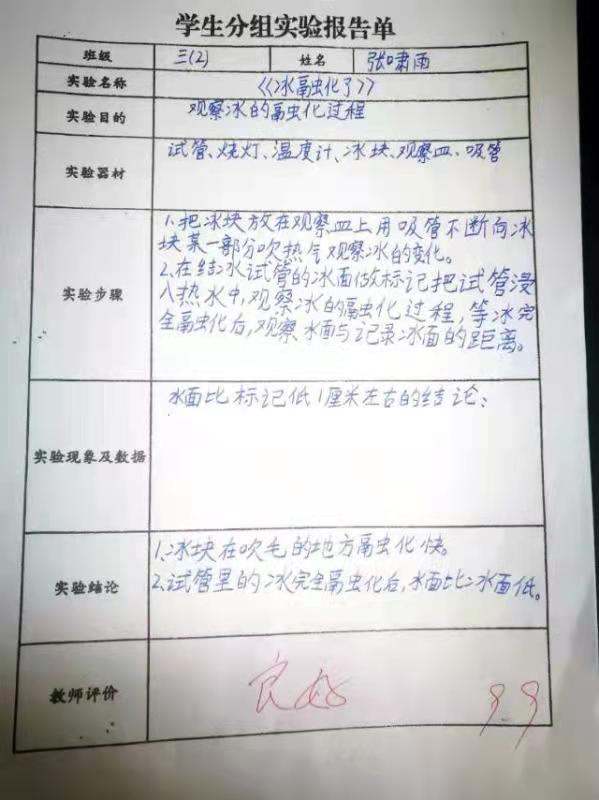 学生分组实验报告单
班级 三(2) 姓名 张啸雨
实验名称 《冰融化了》
实验目的 观察冰的融化过程
实验器材 试管、烧灯、温度计、冰块、观察皿、吸管
实验步骤
1.把冰块放在观察皿上用吸管不断向冰
块某一部分吹热气观察冰的变化。
2.在结冰试管的冰面做标记把试管浸
入热水中,观察冰的融化过程,等冰完
全融化后,观察水面与记录冰面的距离。
实验现象及数据
水面比标记低1厘米左右的结论:
实验结论
1.冰块在吹毛的地方融化快。
2.试管里的冰完全融化后,水面比冰面低。
教师评价 良好 99